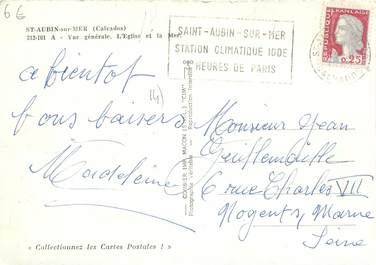 6€
ST-AUBIN-sur-MER (Calvados)
212-101 A - Vue générale. L'Eglise et la Mer
SAINT-AUBIN-SUR-MER
STATION CLIMATIQUE IODÉE
HEURES DE PARIS
REPUBLIQUE FRANÇAISE
0,25
(14)
a bientot
bons baisers
Madeleine
COMBIER IMP. MACON
Photographie véritable - Reproduction interdite
Monsieur Jean
6 rue Charles VII
Nogent s/ Marne
Seine
« Collectionnez les Cartes Postales ! »